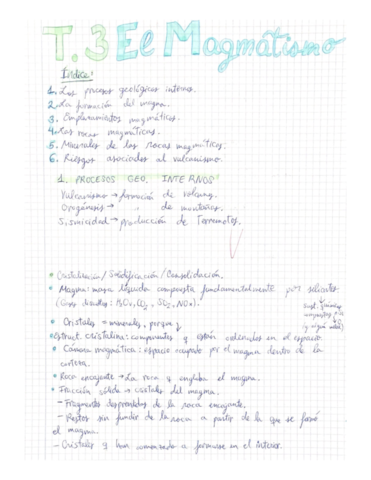 T.3 El Magmátismo
Índice:
1. Los procesos geológicos internos.
2. La formación del magma.
3. Emplazamientos magmáticos.
4. Las rocas magmáticas.
5. Minerales de las rocas magmáticas.
6. Riesgos asociados al vulcanismo.
1. PROCESOS GEO. INTERNOS
Vulcanismo → formación de volcanes.
Orogénesis → " de montañas.
Sismicidad → producción de Terremotos.
• Cristalización / Solidificación / Consolidación.
• Magma: masa líquida compuesta fundamentalmente por silicatos
(Gases disueltos: H2O, CO2, SO2, NOx).
• Cristales → minerales, porque
• Estruct. cristalina: componentes y están ordenados en el espacio.
• Cámara magmática: espacio ocupado por el magma dentro de la
corteza.
• Roca encajante → La roca q engloba el magma.
• Fracción sólida → cristales del magma.
- Fragmentos desprendidos de la roca encajante.
- Restos sin fundir de la roca a partir de la que se formó
el magma.
- Cristales q han comenzado a formarse en el interior.